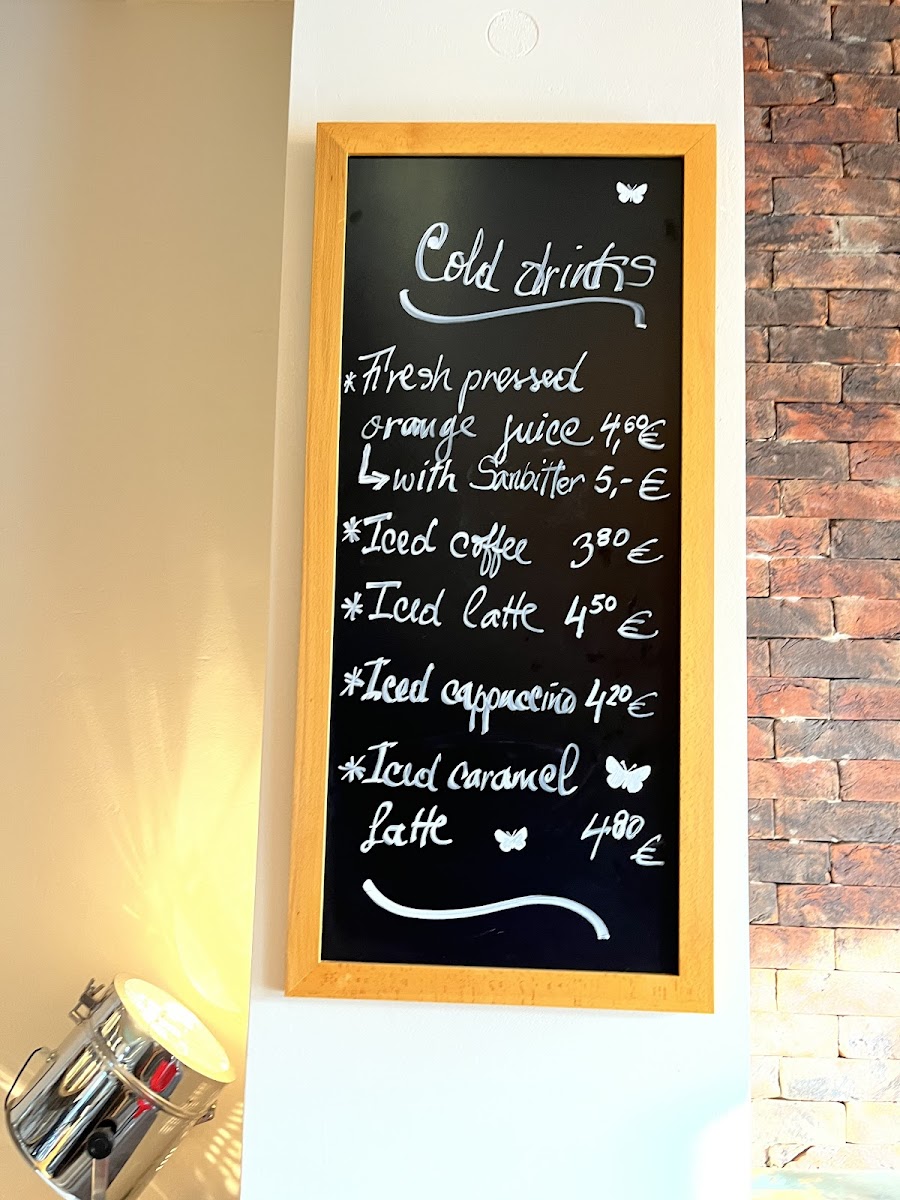 Cold drinks
* Fresh pressed
orange juice 4,60€
↳ with Sanbitter 5,- €
* Iced coffee 3 80 €
* Iced latte 4 50 €
* Iced cappuccino 4 20 €
* Iced caramel
Latte 4 80 €